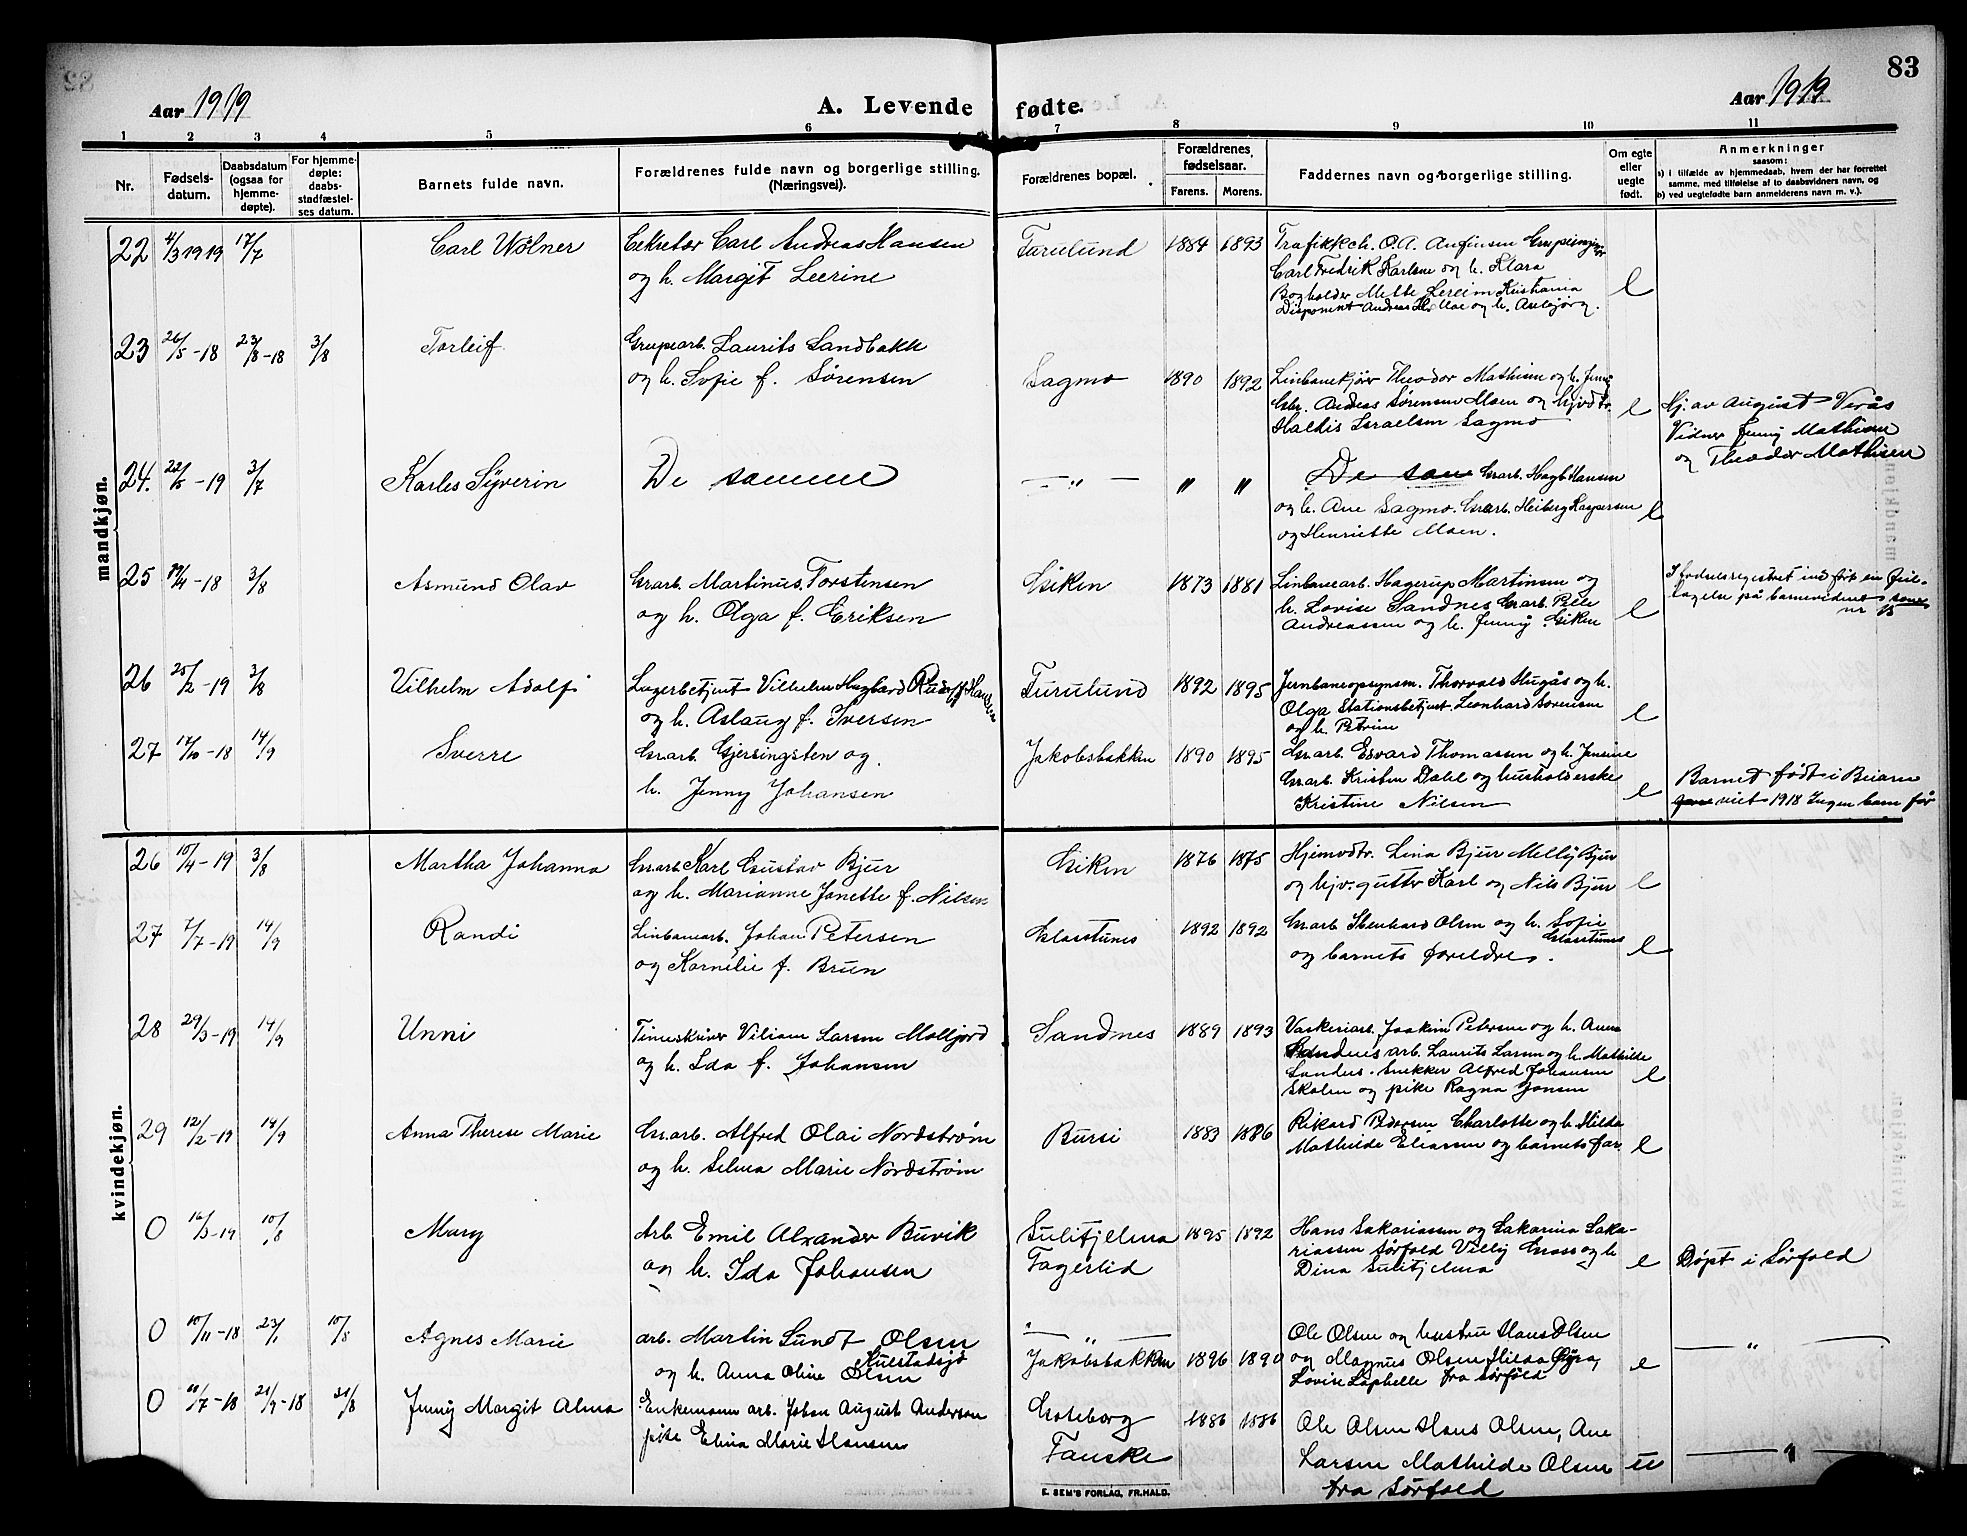 83
Aar 1919
A. Levende fødte.
Aar 1919
1 2 3 4 5 6 7 8 9 10 11
Nr.
Fødsels-
datum.
Daabsdatum
(ogsaa for
hjemme-
døpte).
For hjemme-
døpte:
daabs-
stadfæstel-
ses datum.
Barnets fulde navn.
Forældrenes fulde navn og borgerlige stilling.
(Næringsvei).
Forældrenes bopæl.
Forældrenes
fødselsaar.
Farens. Morens.
Faddernes navn og borgerlige stilling.
Om egte
eller
uegte
født.
Anmerkninger
saasom:
a) i tilfælde av hjemmedaab, hvem der har forrettet
samme, med tilføielse af to daabsvidners navn, og
b) ved uegtefødte barn anmelderens navn m. v.).
mandkjøn.
22 4/3 1919 17/7 Carl Wølner Sekretær Carl Andreas Hansen Furulund 1884 1893 Trafikkch. O.A. Anfinsen
og h. Margit Leerine Carl Fredrik Karlsen og h. Klara e
Bogholder Kristiania
Disponent Andreas og h. Anbjørg.
23 26/5 -18 23/8 -18 3/8 Torleif Grupearb. Laurits Sandbakk
og h. Sofie f. Sørensen Sagmo 1890 1892 Linbanekjører Theodor Mathisen og h. Jenny
Grb. Andreas Sørensen Moen og hjvdtr. e Hj. av August Verås
Haldis Israelsen Sagmo Vidner Jenny Mathisen
og Theodor Mathisen
24. 22/5 -19 3/7 Karles Syverin De samme — " — " " De sam Grarb. Hagb Hansen
og h. Ane Sagmo. Grarb. Heiberg Kaspersen e
og Henriette Moen.
25 19/4 -18 3/8 Asmund Olav Grarb. Martinus Torstensen Giken 1873 1881 Linbanearb. Hagerup Martinsen og I fødselsregistret ind ført en feil-
og h. Olga f. Eriksen h. Lovise Sandnes Grarb. Peter e tagelse på barnevidnet
Andreassen og h. Jenny Giken nr 15
26 25/2 -19 3/8 Vilhelm Adolf Lagerbetjent Vilhelm Hagbard Rudolf Hansen Furulund 1892 1895 Jernbaneopsynsm. Thorvald Hugås og h.
og h. Aslaug f. Iversen Olga Stationsbetjent Leonhard Sørensen e
og h. Petrine
27 17/10 -18 14/9 Sverre Grarb. Gjersingsten og Jakobsbakken 1890 1895 Grarb. Edvard Thomassen og h. Jensine
h. Jenny Johansen Grarb. Kristen Dahl og husholderske e Barnet født i Beiarn
Kristine Nilsen viet 1918 Ingen barn før
kvindekjøn.
26 10/4 -19 3/8 Martha Johanna Grarb. Karl Gustav Bjur Giken 1876 1875 Hjemvdtr. Lina Bjur Melly Bjur
og h. Marianne Janette f. Nilsen og hjv. gutter Karl og Nils Bjur e
27 7/7 -19 14/9 Randi Linbanearb. Johan Petersen Glastunes 1892 1892 Grarb Stenhard Olsen og h. Sofie
og Kornelie f. Brun Glastunes
og barnets foreldre. e
28 29/3 -19 14/9 Unni Timeskriver Viliam Larsen Mølljord Sandnes 1889 1893 Vaskeriarb. Joakim Petersen og h. Anna
og h. Ida f. Johansen Sandnes arb. Laurits Larsen og h. Mathilde
Sandnes. Snekker Alfred Johansen e
Skolen og pike Ragna Jensen
29 12/2 -19 14/9 Anna Therese Marie Grarb. Alfred Olai Nordstrøm Bursi 1883 1886 Rikard Pedersen Charlotte og h. Hilda
og h. Selma Marie Nordstrøm Mathilde Eliassen og barnets far e
0 16/3 -19 10/8 Mary Arb. Emil Alexander Buvik Sulitjelma 1895 1892 Hans Sakariassen og Sakarina Saka-
og h. Ida Johansen Fagerlid riassen Sørfold Villy Grass og h
Dina Sulitjelma e Døpt i Sørfold
0 10/11 -18 23/1 10/8 Agnes Marie arb. Martin Lundt Olsen — " — Ole Olsen og hustru Hans Olsen
Kulstadsjø
og h. Anna Oline Olsen Jakobsbakken 1896 1890 og Magnus Olsen Hilda e — " —
Lovise fra Sørfold
0 11/7 -18 21/9 -18 31/8 Jenny Margit Alma Enkemann arb. Johan August Anderson Goteborg 1886 1886 Ole Olsen Hans Olsen, Ane
pike Elina Marie Hansen Fauske Larsen Mathilde Olsen u — " —
fra Sørfold
E. SEM'S FORLAG, FR.HALD.